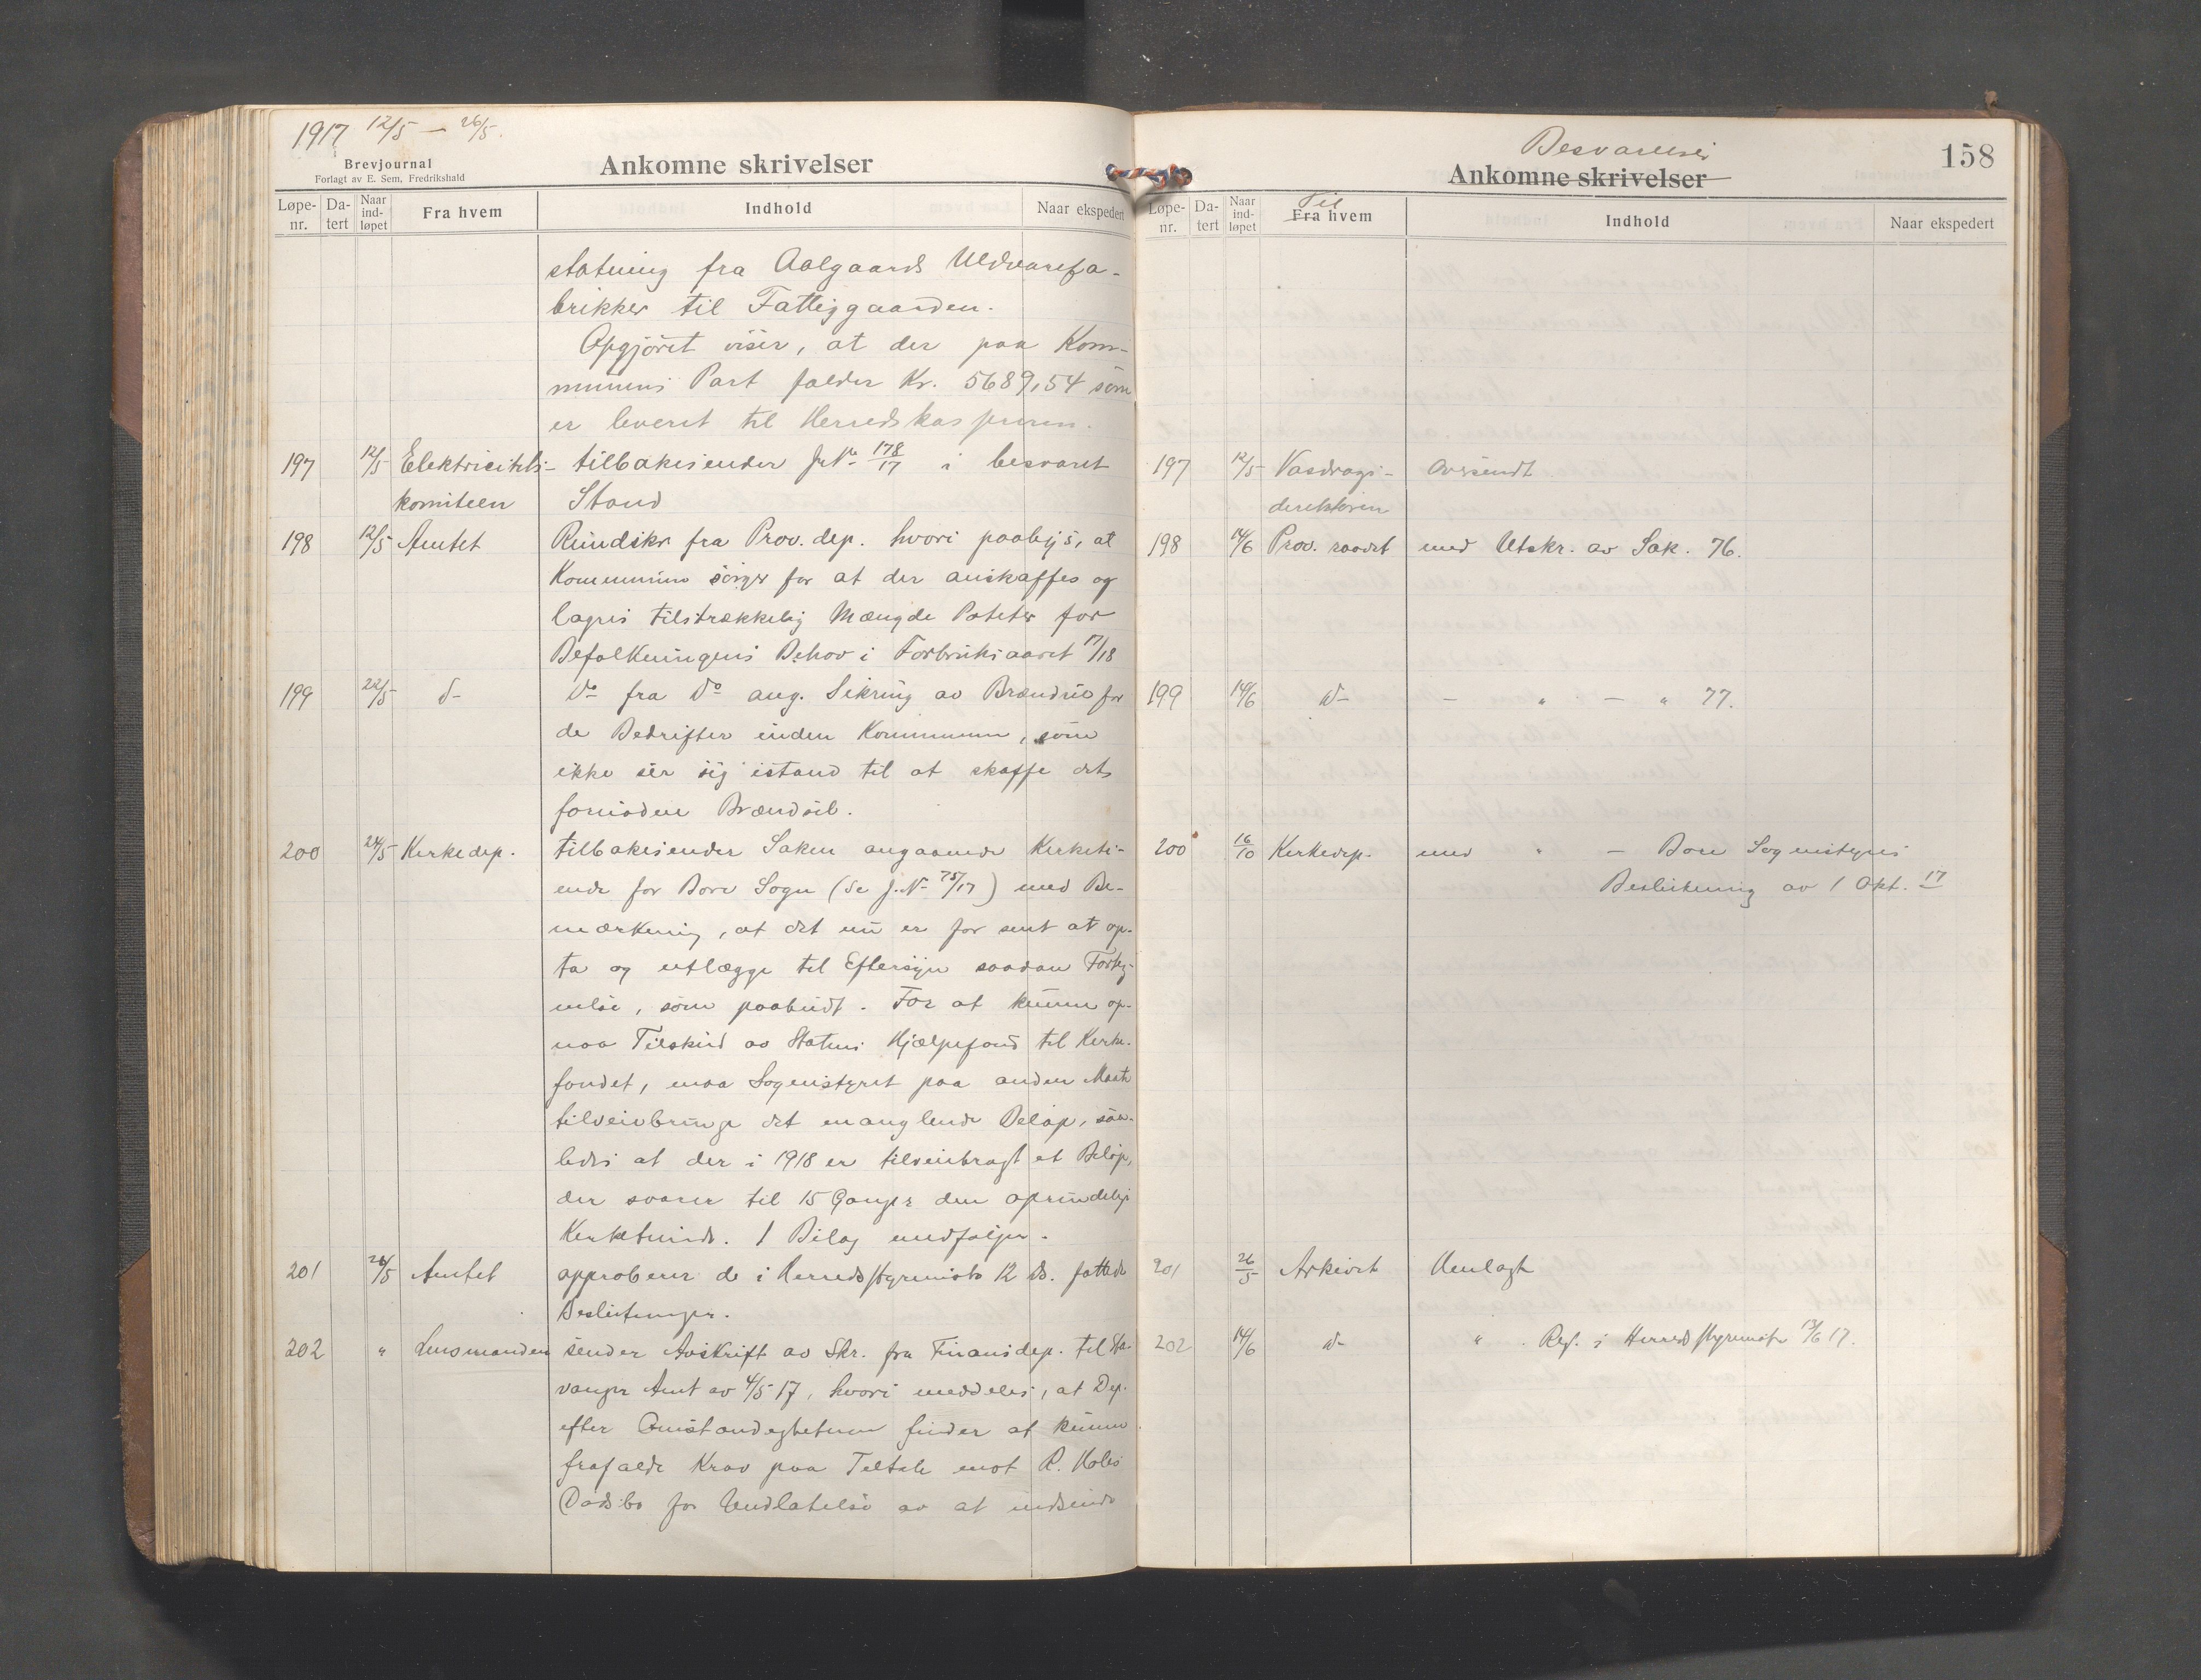 1917 12/5 — 26/5.
Brevjournal
Forlagt av E. Sem, Fredrikshald
Ankomne skrivelser
Løpe-nr. Da-tert Naar ind-løpet Fra hvem Indhold Naar ekspedert
statning fra Aalgaards Uldvarefa-
brikker til Fattiggaarden.
Opgjöret viser, at der paa Kom-
munens Part falder Kr. 5689,54 som
er leveret til Herredskassereren.
197 12/5 Elektricitets- tilbakesender J.No 178/17 i besvaret
komiteen Stand
198 12/5 Amtet Rundskr fra Prov. dep. hvori paalegges, at
Kommunene sörger for at der anskaffes og
lagres tilstrækkelig Mængde Poteter for
Befolkningens Behov i Forbruksaaret 17/18
199 22/5 do do fra do ang. Sikring av Brændsel for
de Bedrifter inden Kommunen, som
ikke ser sig istand til at skaffe det
fornödne Brændsel.
200 24/5 Kirkedep. tilbakesender Saken angaaende Kirketi-
ende for Bore Sogn (Se J.No 75/17) med Be-
mærkning, at det nu er for sent at op-
ta og utlægge til Eftersyn saadan Forteg-
nelse, som paabudt. For at kunne op-
naa Tilskud av Statens Hjælpefond til Kirke-
fondet, maa Sognestyret paa anden Maate
tilveiebringe det manglende Belöp, saa-
ledes at der i 1918 er tilveiebragt et Belöp,
der svarer til 15 Ganger den oprindelige
Kirketiende. 1 Bilag medfölger.
201 26/5 Amtet approberer de i Herredsstyremöte 12 ds. fattede
Beslutninger.
202 " Lensmanden sender Avskrift av Skr. fra Finansdep. til Sta-
vanger Amt av 4/5 17, hvori meddeles, at Dep.
efter Omstændighetene finder at kunne
frafalde Krav paa Tiltale mot R.
Dödsbo for Undlatelse av at indsende
Besvarelser
Ankomne skrivelser
158
Løpe-nr. Da-tert Naar ind-løpet Fra hvem Til Indhold Naar ekspedert
197 12/5 Vasdrags- Oversendt
direktören
198 14/6 Prov. raadet med Utskr. av Sak. 76.
199 14/6 do — " — " 77.
200 16/10 Kirkedep. med " — Bore Sognestyres
Beslutning av 1 Okt. 17
201 26/5 Arkivet Henlagt
202 14/6 do " . Ref. i Herredsstyremöte 13/6 17.